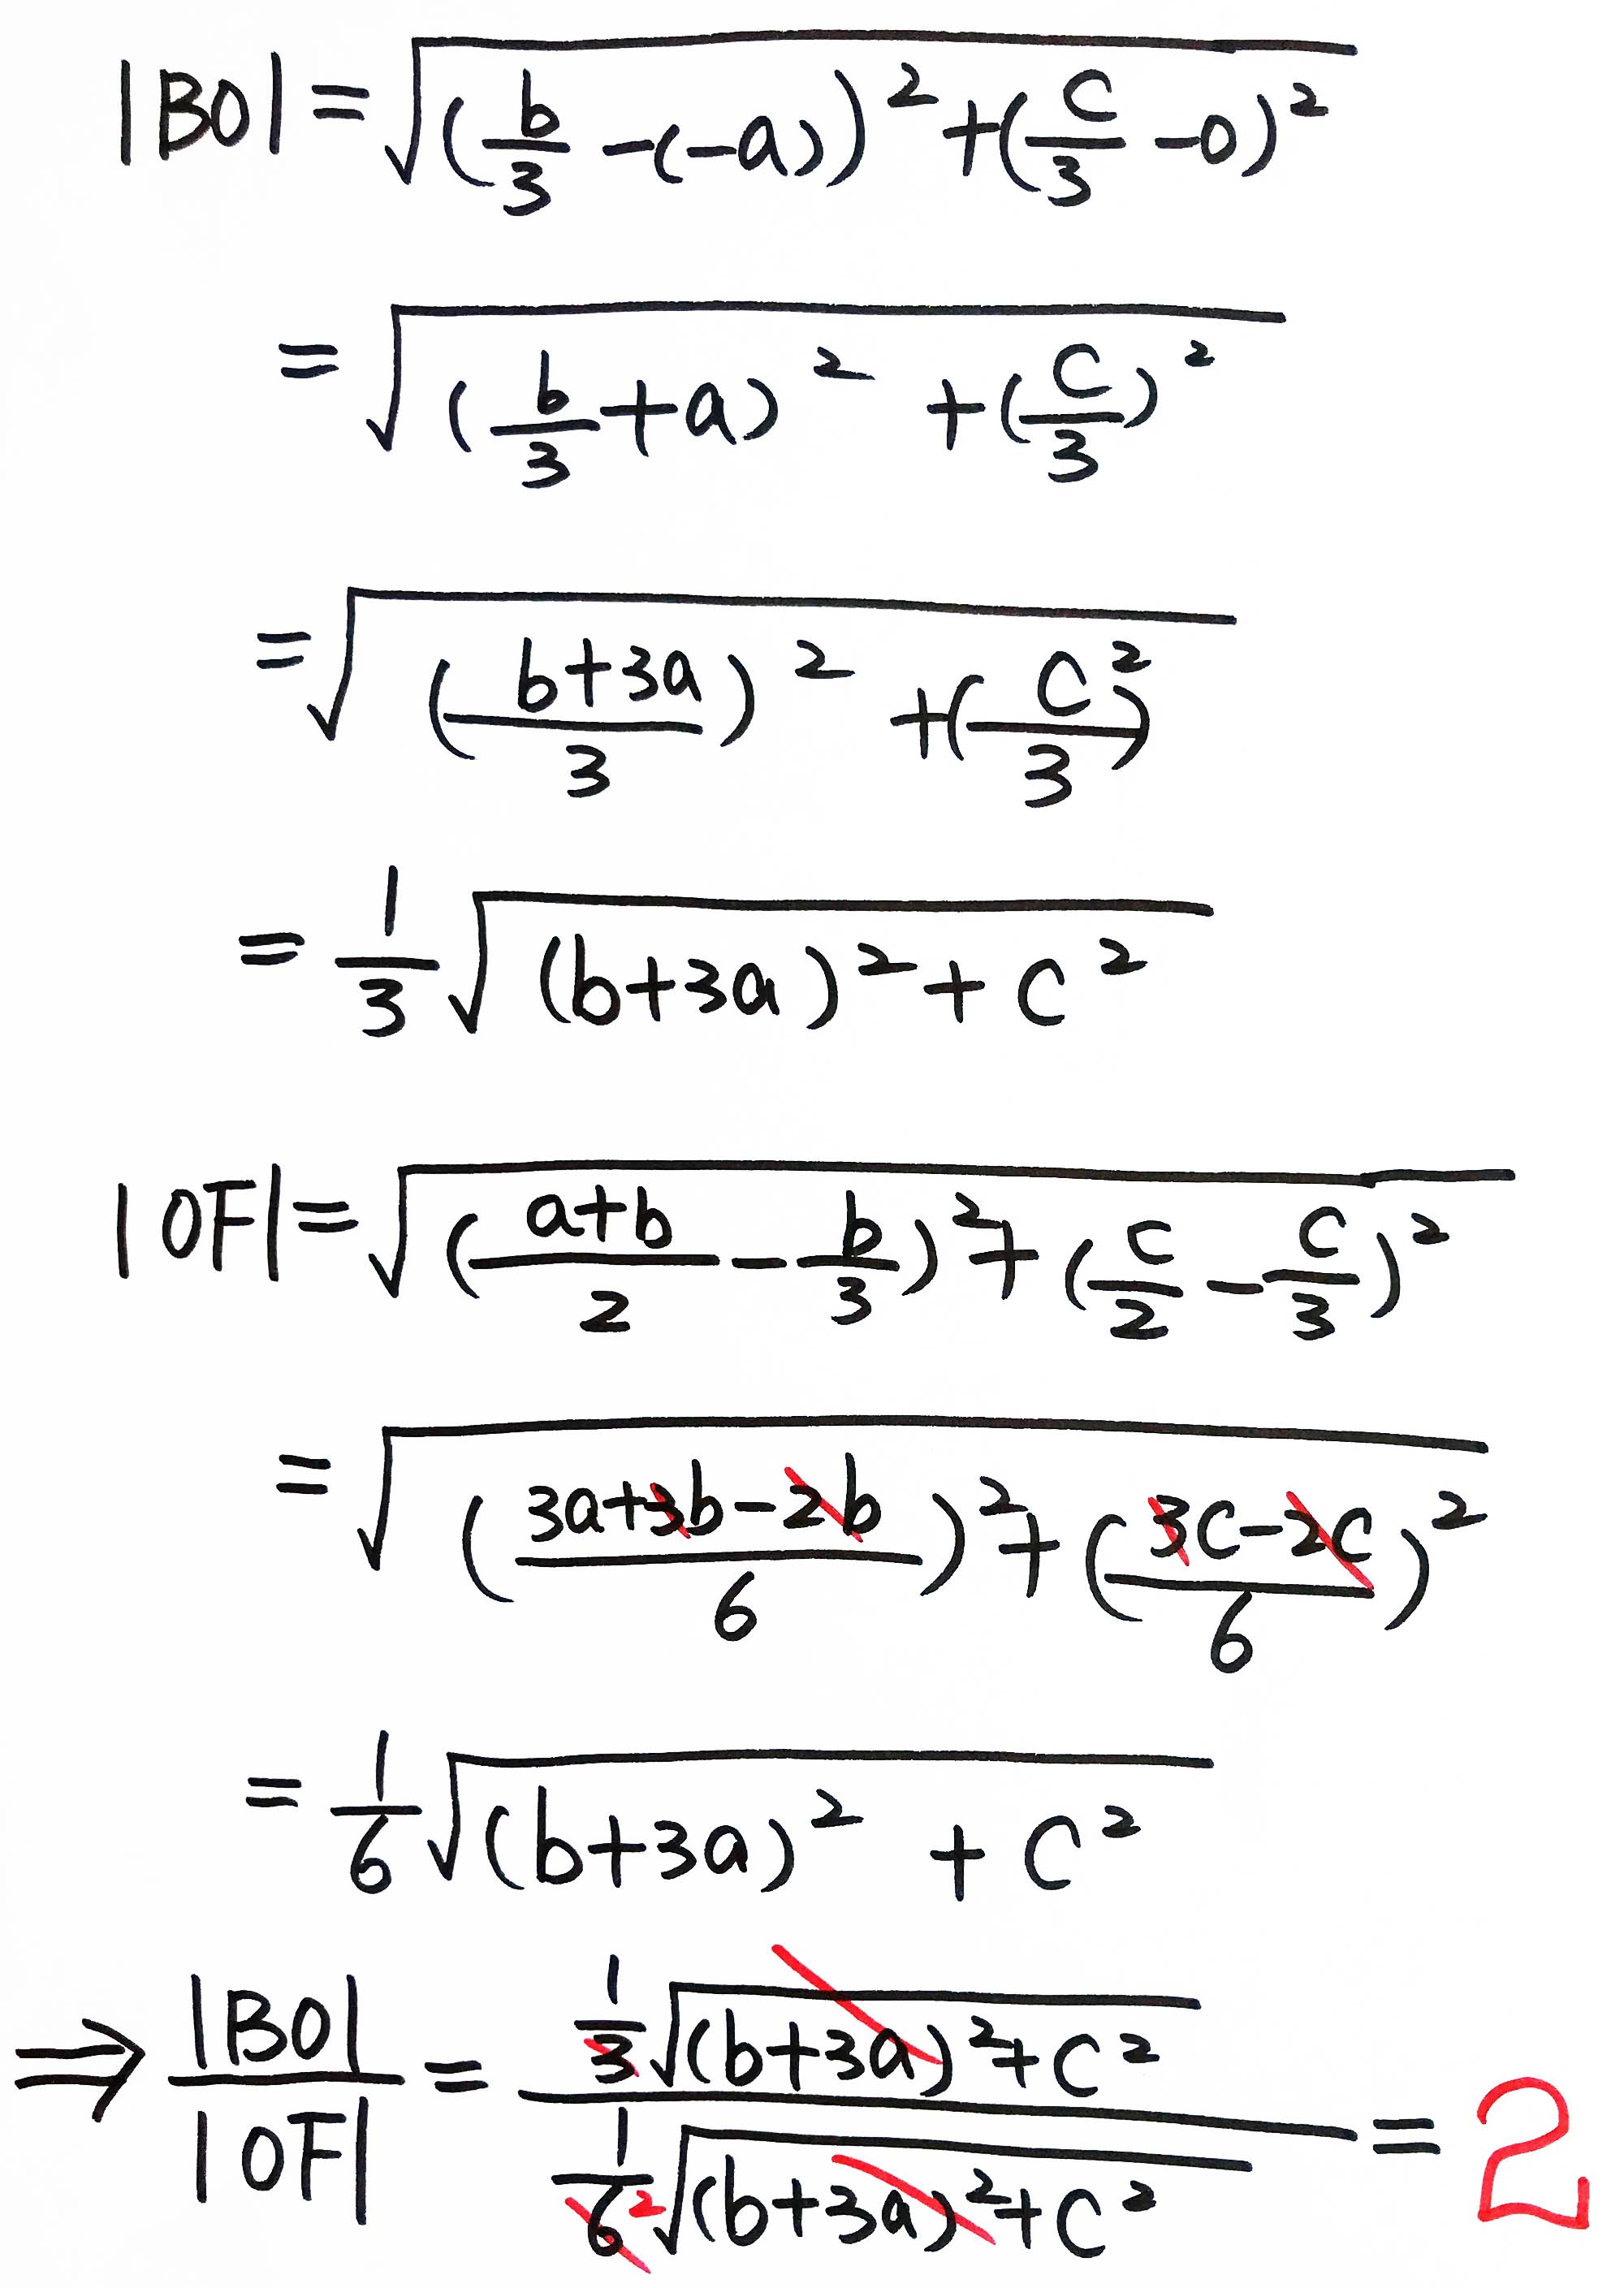 |BO| = √((b/3 -(-a))² + (c/3 - 0)²)
= √((b/3 + a)² + (c/3)²)
= √(((b+3a)/3)² + (c/3)²)
= 1/3 √((b+3a)² + c²)
|OF| = √(((a+b)/2 - b/3)² + (c/2 - c/3)²)
= √(((3a+3b-2b)/6)² + ((3c-2c)/6)²)
= 1/6 √((b+3a)² + c²)
⇒ |BO|/|OF| = (1/3 √((b+3a)² + c²))/(1/6 2 √((b+3a)² + c²)) = 2